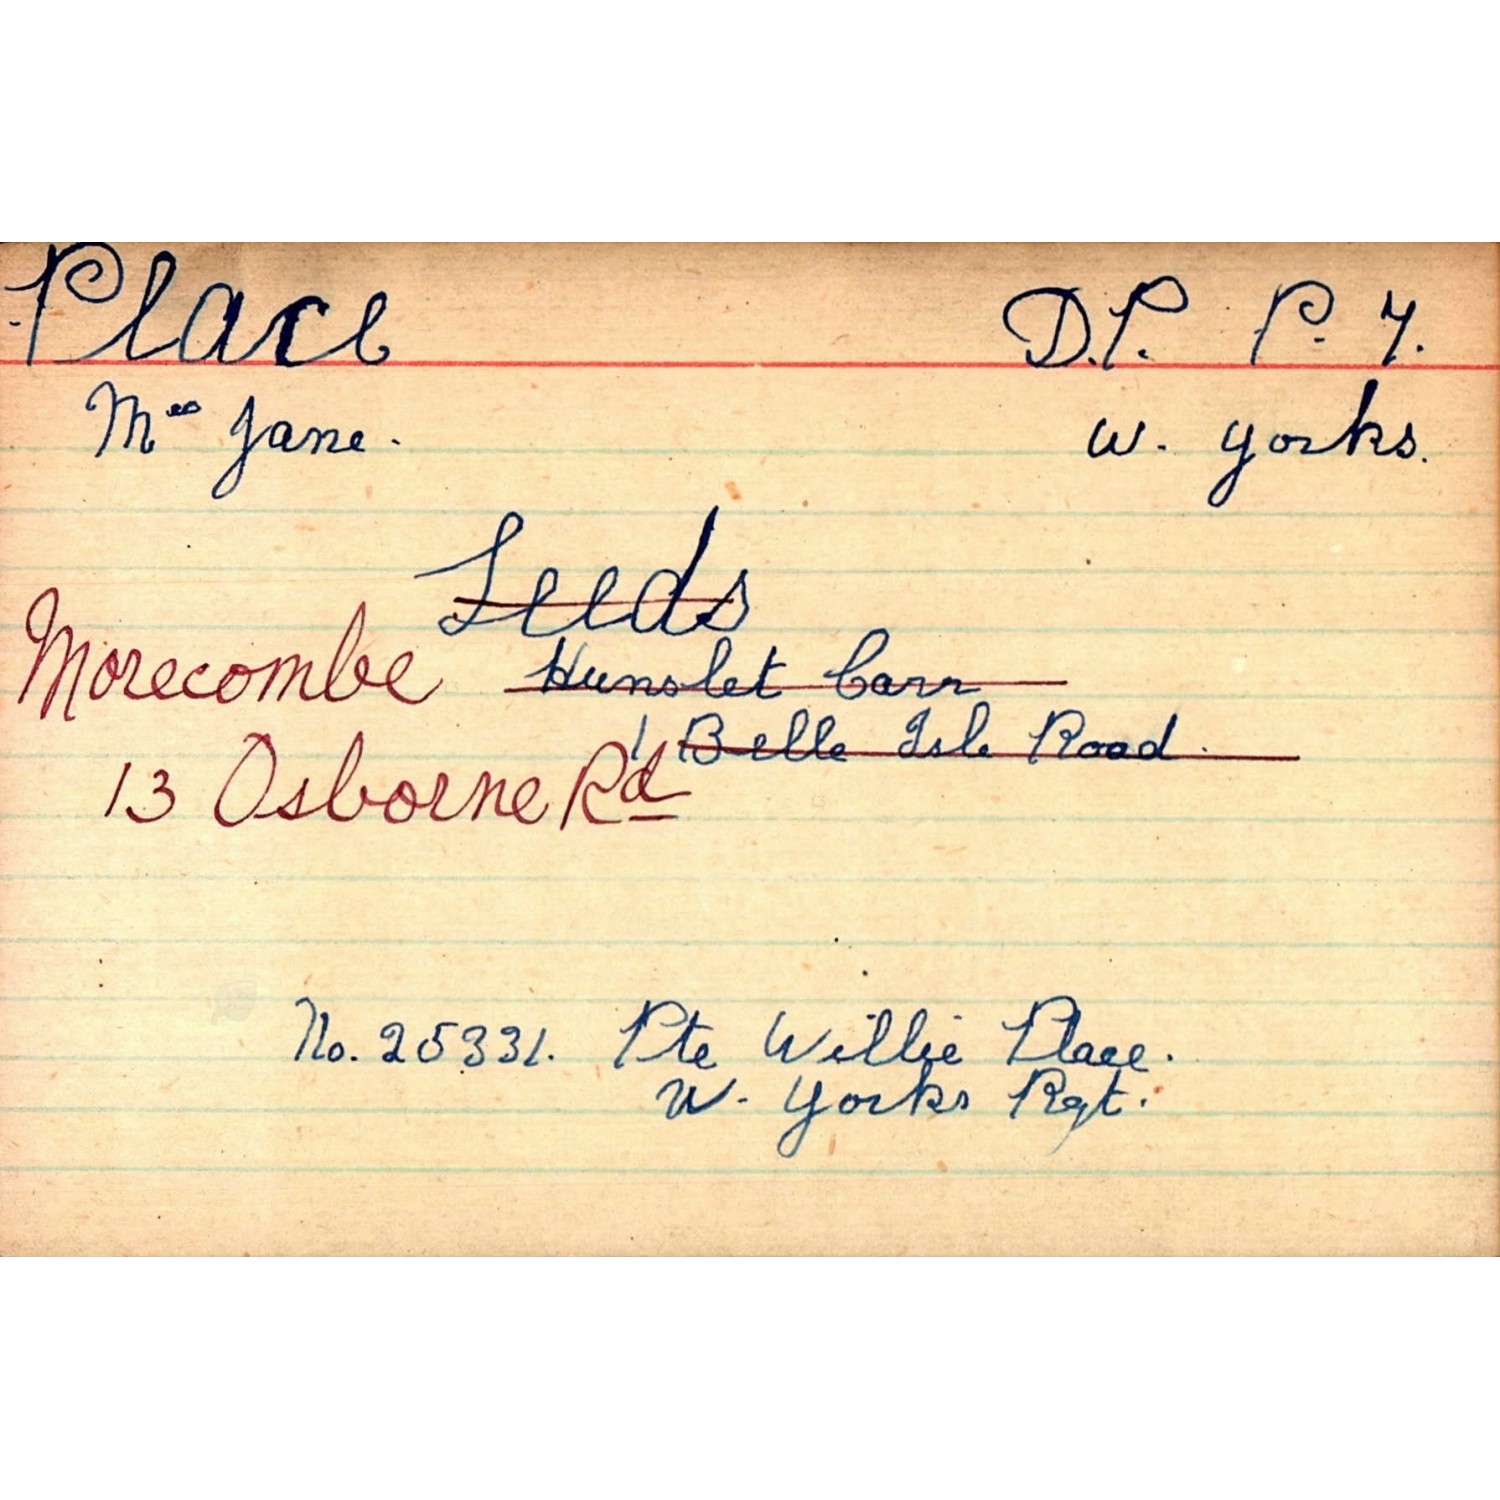 Place D.P. P. 7.
Mrs Jane. W. Yorks.
Leeds
Morecombe Hunslet Carr
1 Belle Isle Road.
13 Osborne Rd
No. 25331. Pte Willie Place.
W. Yorks Rgt.